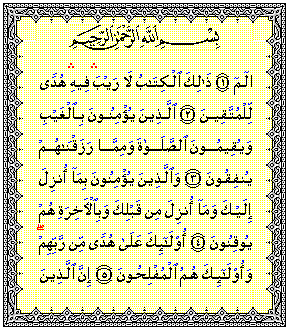 بِسْمِ ٱللَّهِ ٱلرَّحْمَٰنِ ٱلرَّحِيمِ
الٓمٓ ۝١ ذَٰلِكَ ٱلْكِتَٰبُ لَا رَيْبَ ۛ فِيهِ ۛ هُدًى
لِّلْمُتَّقِينَ ۝٢ ٱلَّذِينَ يُؤْمِنُونَ بِٱلْغَيْبِ
وَيُقِيمُونَ ٱلصَّلَوٰةَ وَمِمَّا رَزَقْنَٰهُمْ
يُنفِقُونَ ۝٣ وَٱلَّذِينَ يُؤْمِنُونَ بِمَآ أُنزِلَ
إِلَيْكَ وَمَآ أُنزِلَ مِن قَبْلِكَ وَبِٱلْأَخِرَةِ هُمْ
يُوقِنُونَ ۝٤ أُو۟لَٰٓئِكَ عَلَىٰ هُدًى مِّن رَّبِّهِمْ ۖ
وَأُو۟لَٰٓئِكَ هُمُ ٱلْمُفْلِحُونَ ۝٥ إِنَّ ٱلَّذِينَ